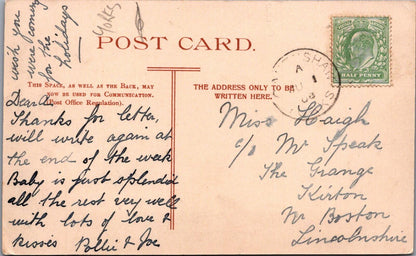 wish you
were coming
for the
holidays
Yorks
POST CARD.
THIS SPACE, AS WELL AS THE BACK, MAY
NOW BE USED FOR COMMUNICATION.
(Post Office Regulation).
THE ADDRESS ONLY TO BE
WRITTEN HERE.
POSTAGE
HALF PENNY
A
AU 1
08
Dear
Thanks for letter,
will write again at
the end of the week
Baby is just splendid
all the rest very well
with lots of love &
kisses Pollie & Joe
Miss Haigh
c/o Mr Speak
The Grange
Kirton
Nr Boston
Lincolnshire